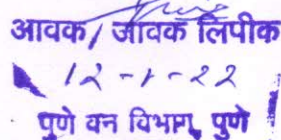 आवक/ जावक लिपीक
12-1-22
पुणे वन विभाग, पुणे